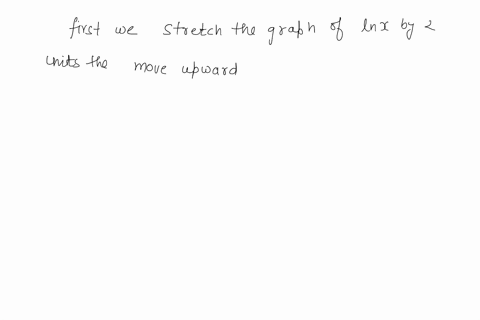 first we stretch the graph of lnx by 2
units the move upward